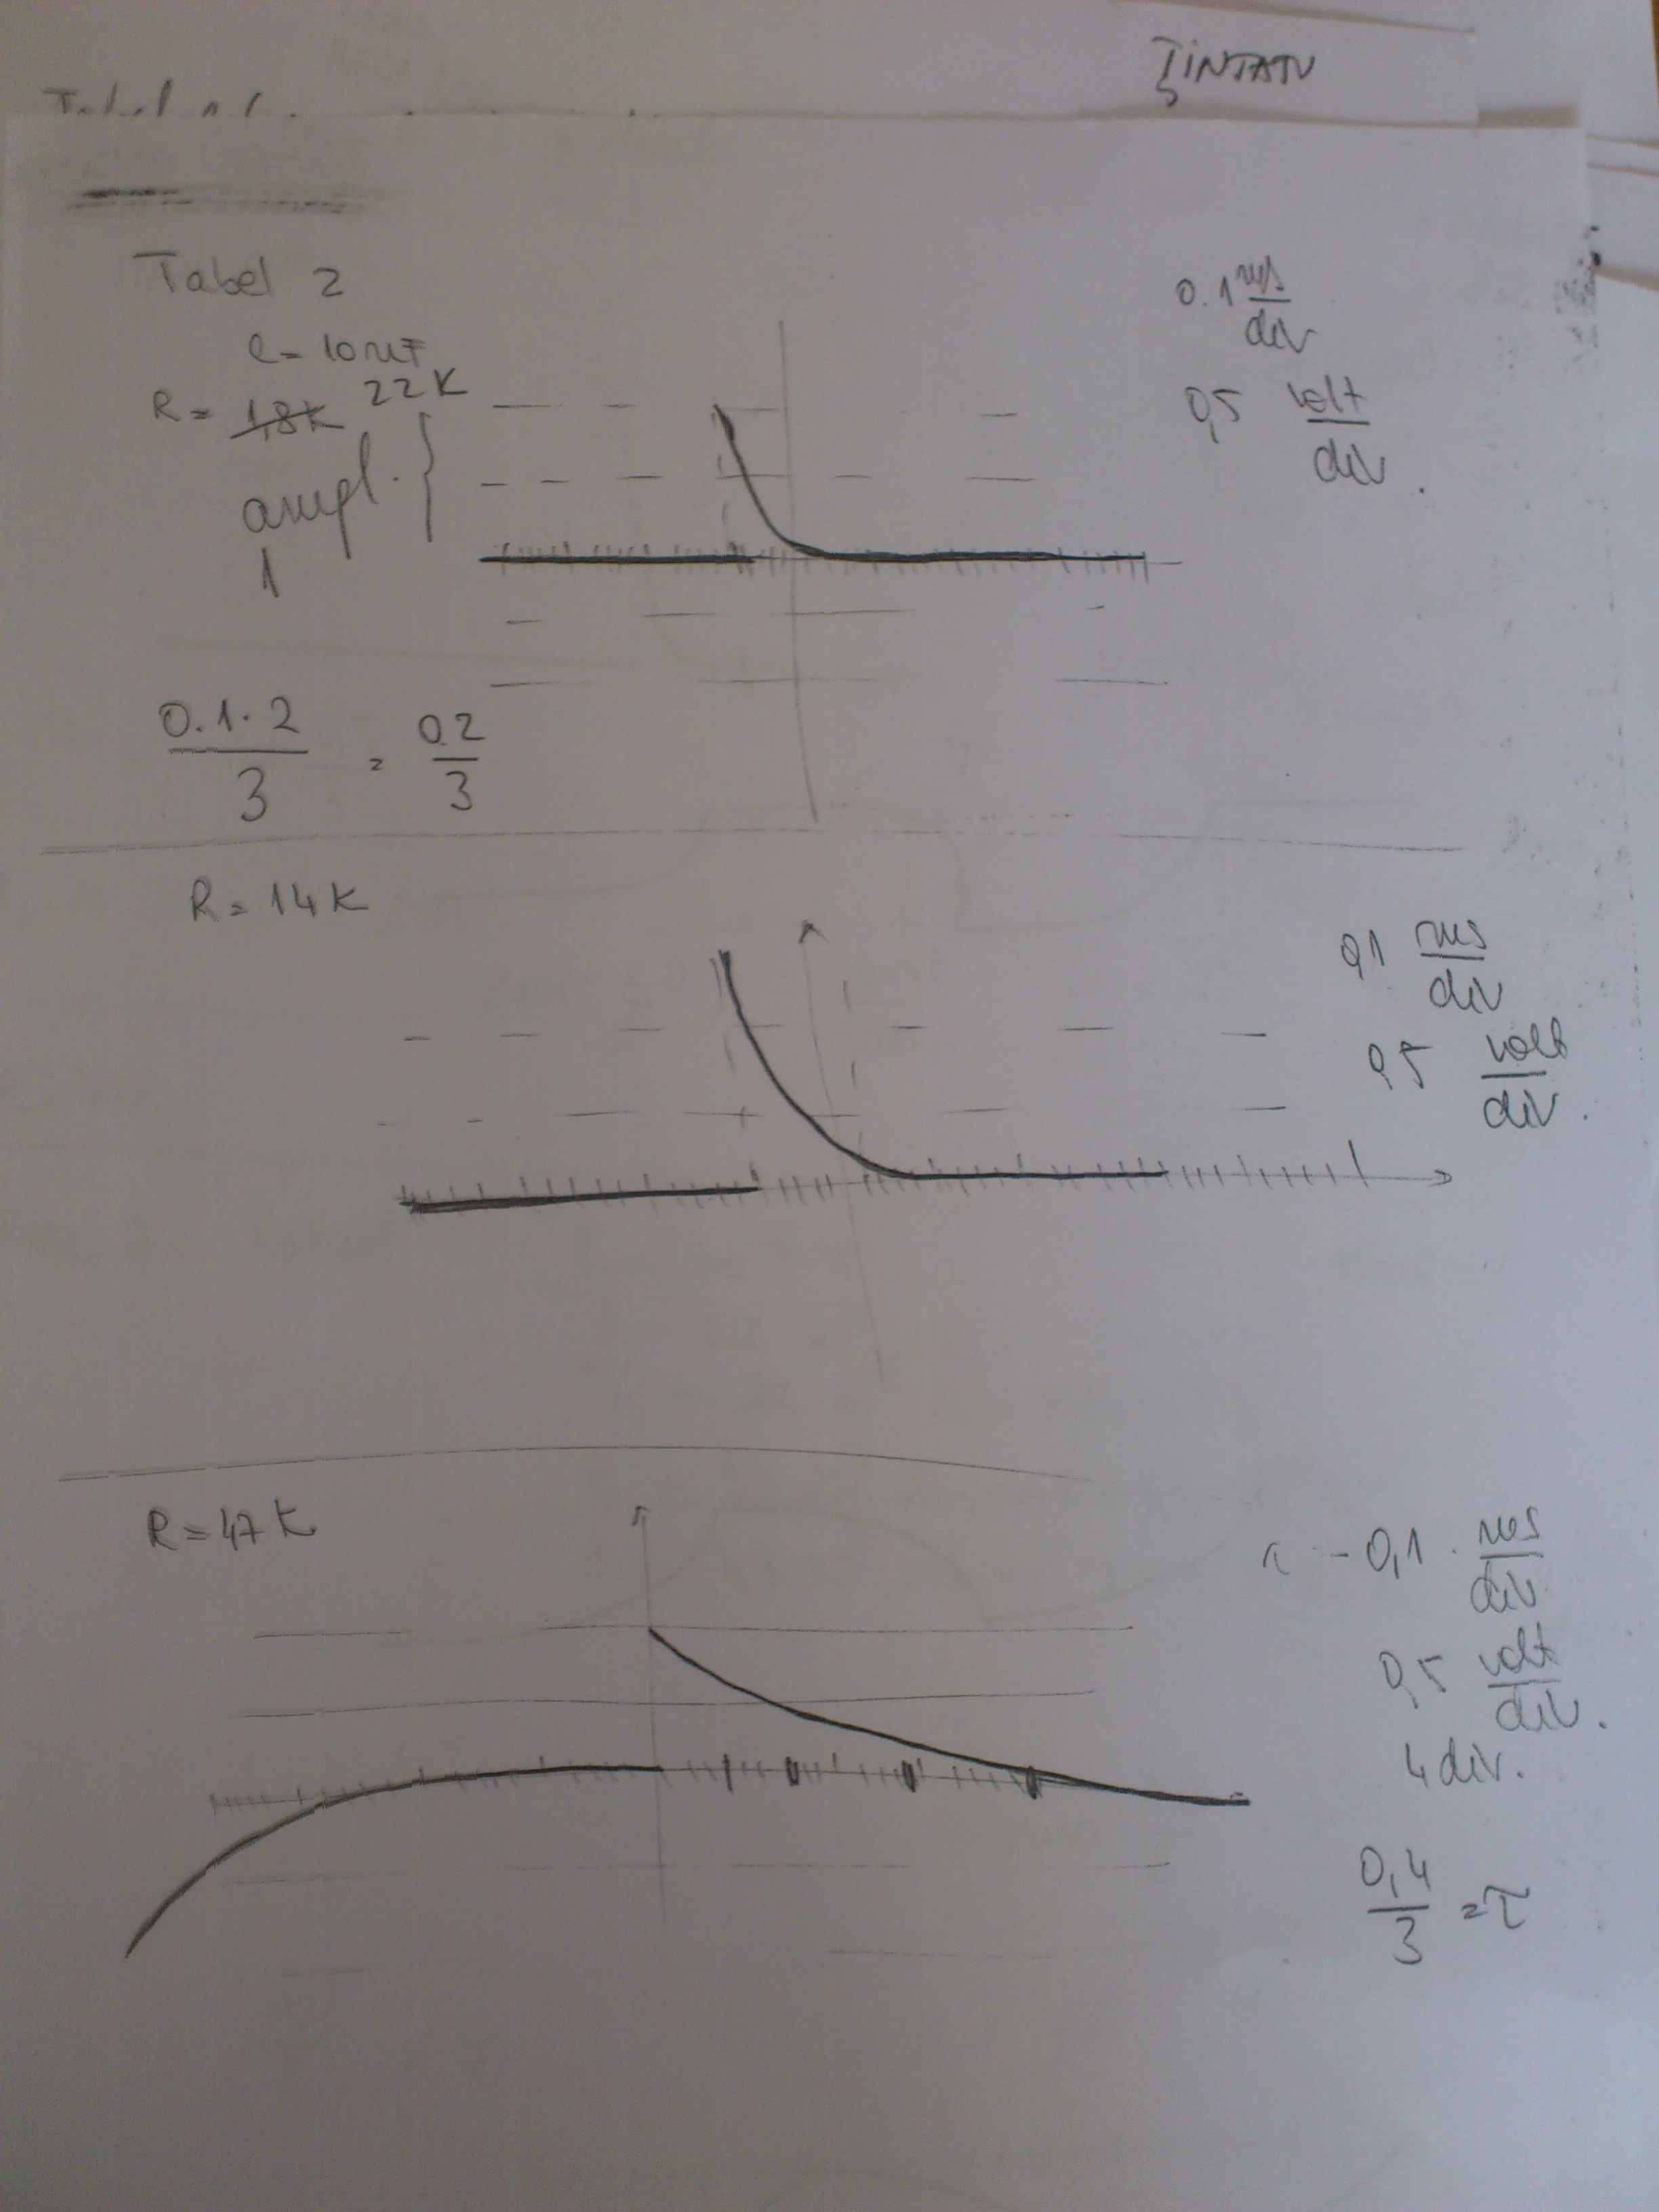 ŢINTATU
Tabel 2
C = 10 nF
R = 1,8K 22K
ampl.
1
0.1 ms/div
0,5 volt/div.
0.1·2/3 = 0.2/3
R = 14K
0,1 ms/div
0,5 volt/div.
R = 47K
0,1 ms/div
0,5 volt/div.
4 div.
0,4/3 = τ